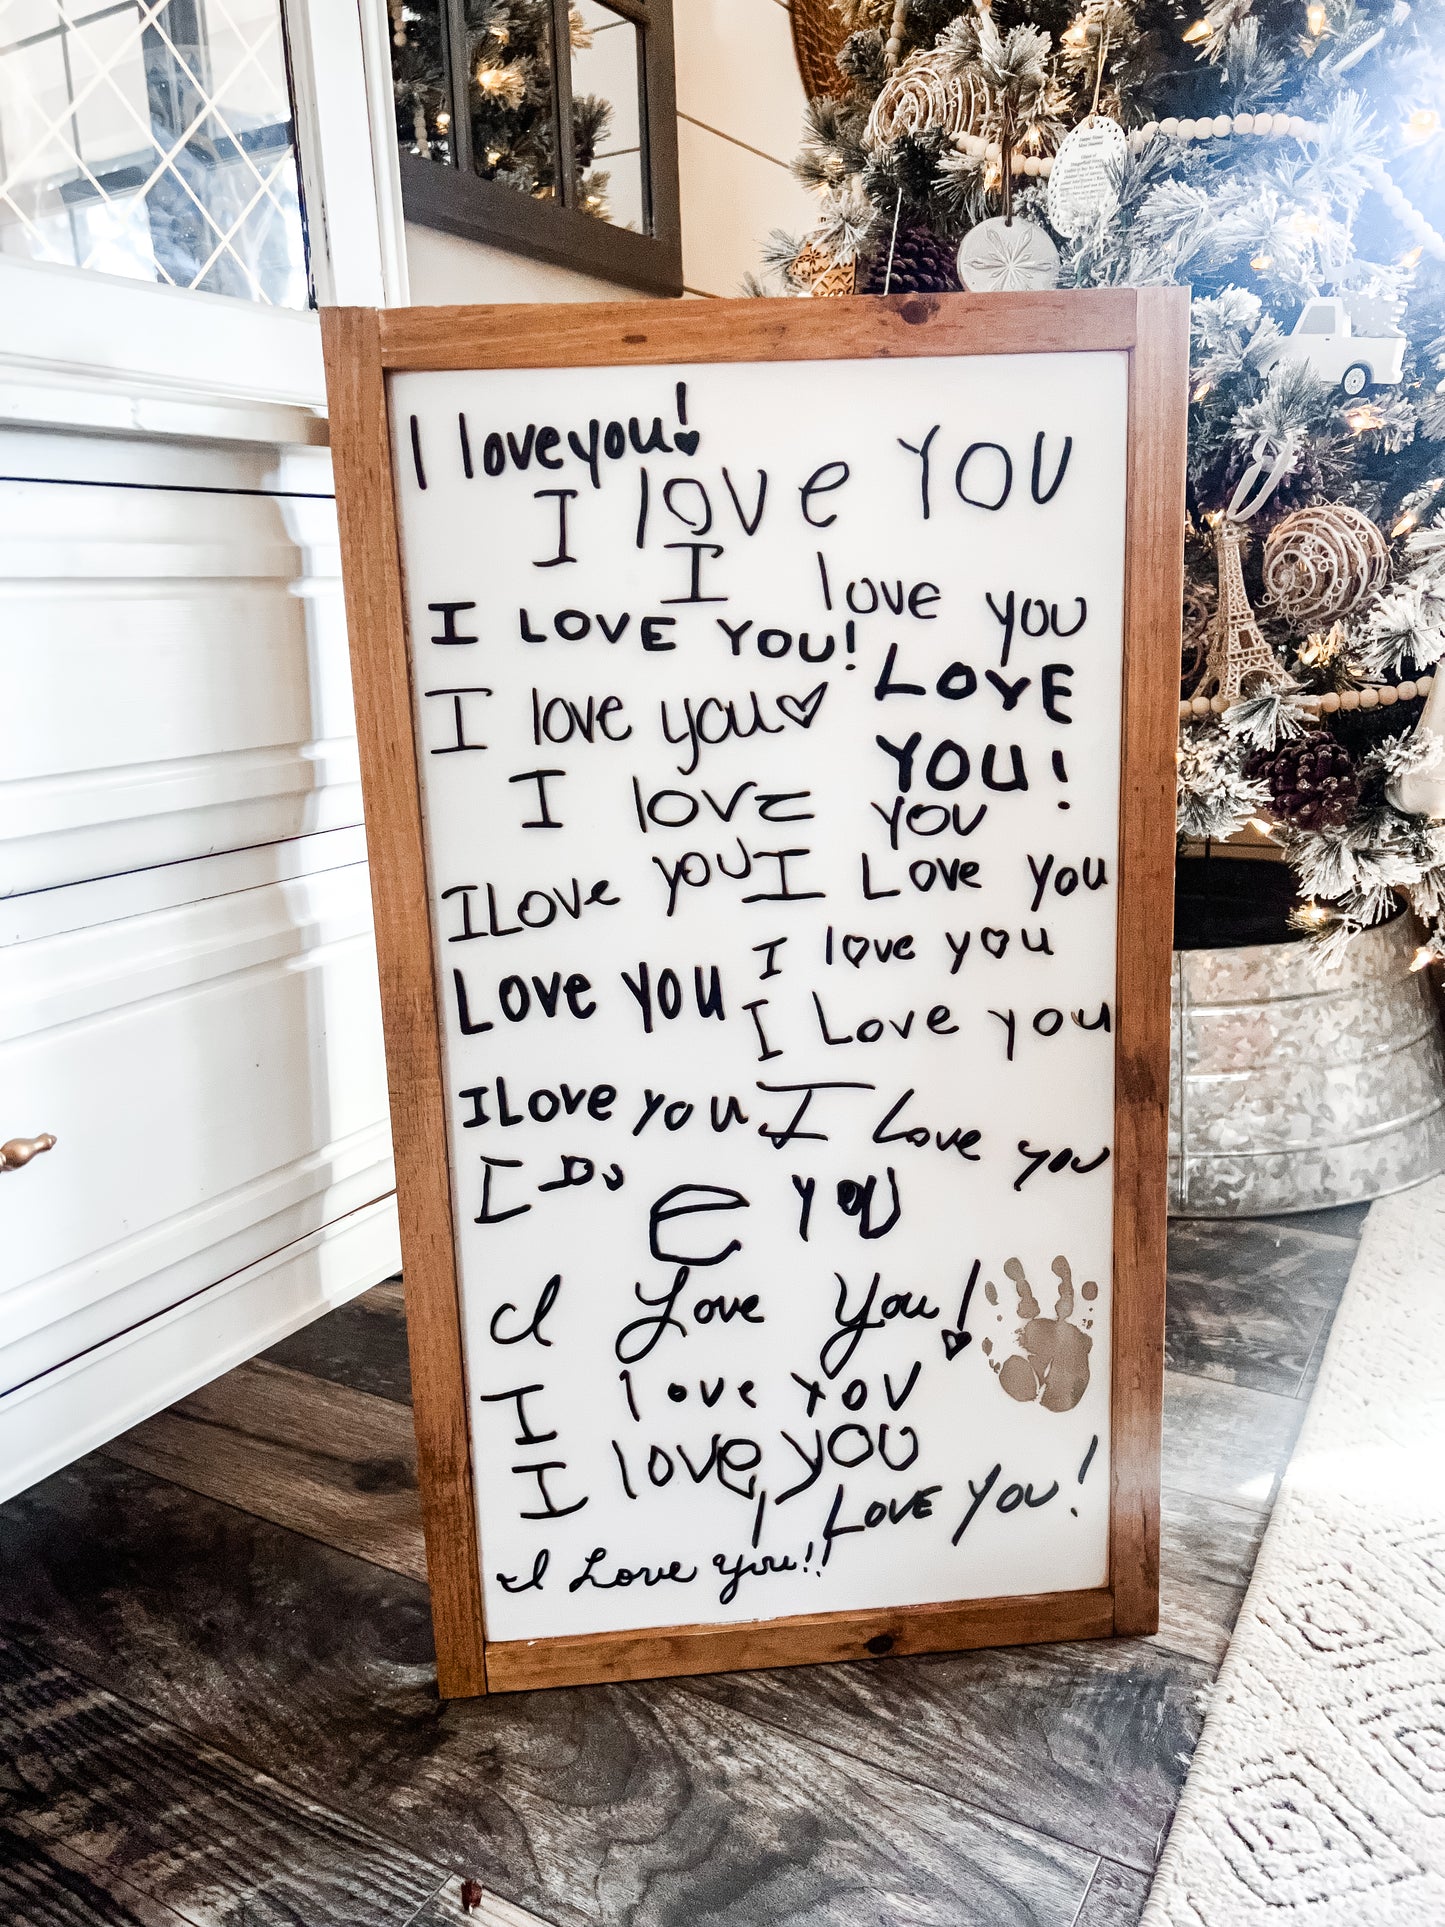 I love you!
I love YOU
I love you
I LOVE YOU!
LOVE
YOU!
I love you
I love you
I Love you
I Love you
I love you
Love you
I Love you
I Love you
I Love you
e you
I Love You!
I love YOU
I love you
I LOVE YOU!
I Love you!!